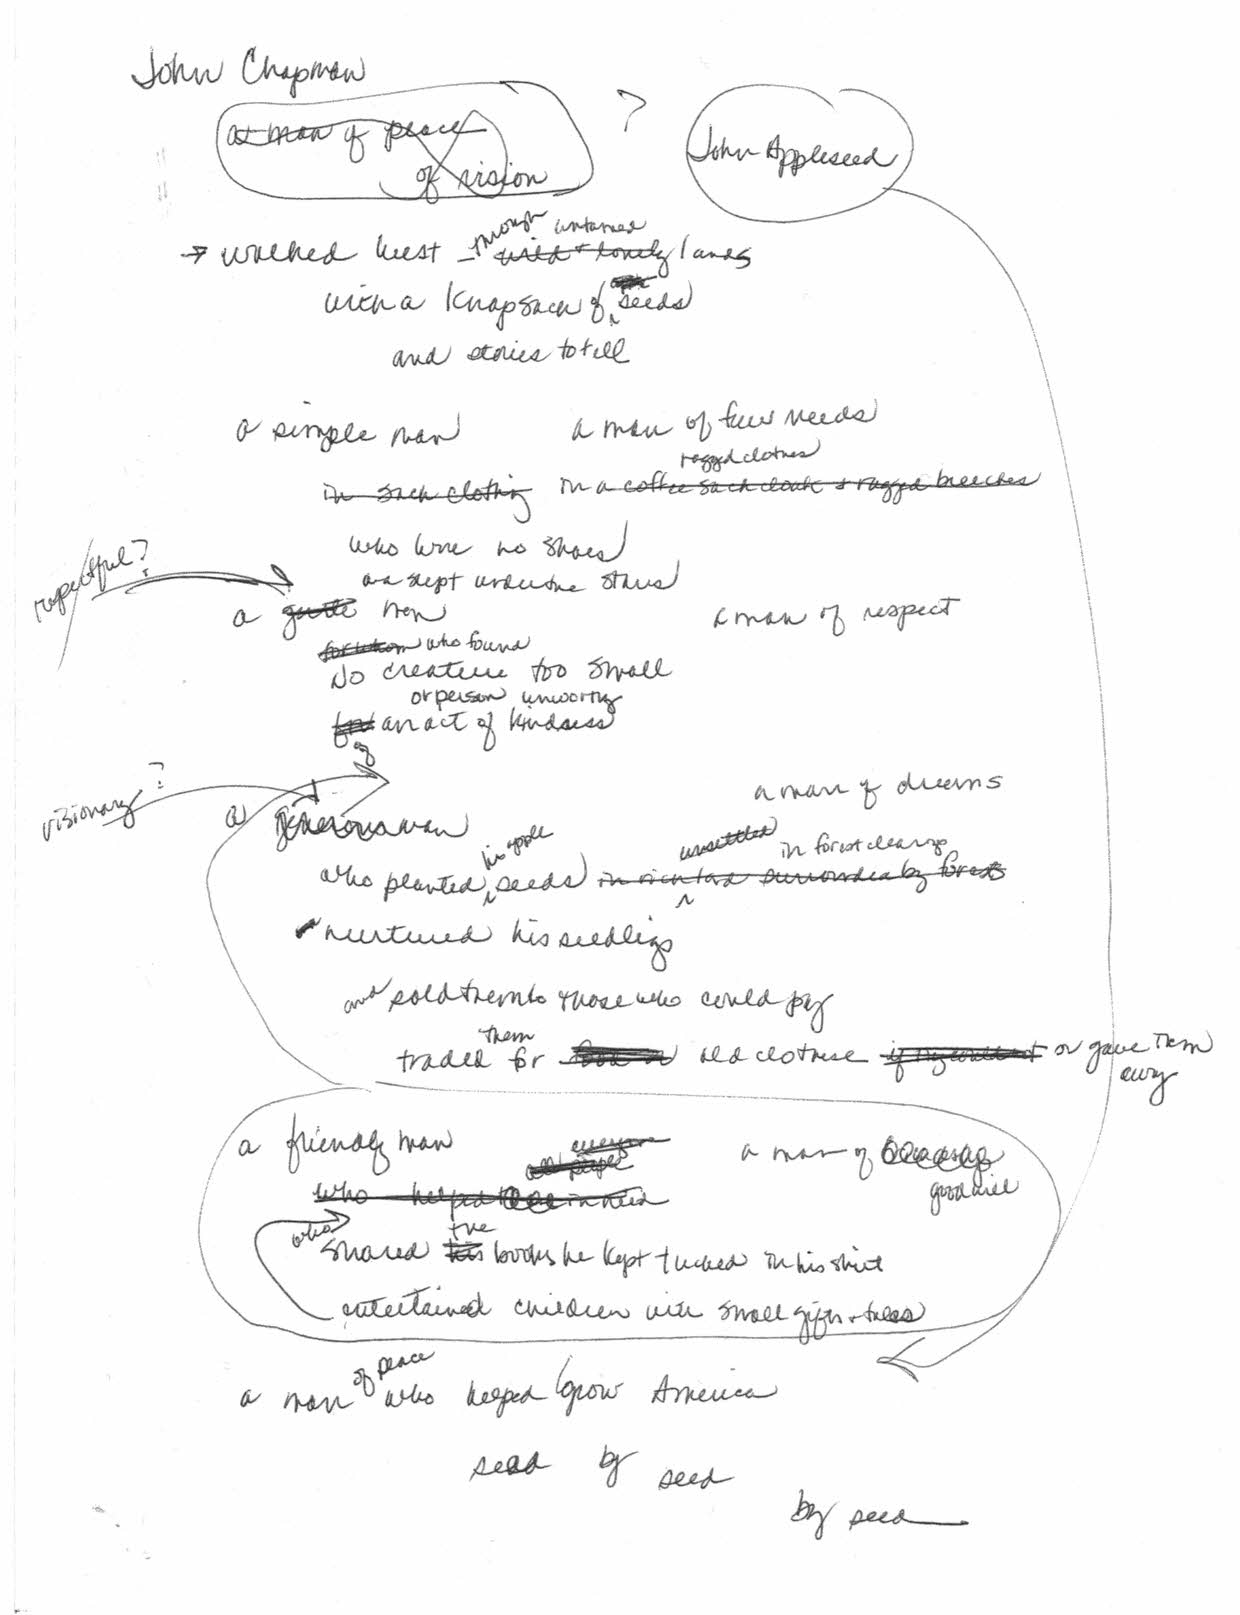 John Chapman
a man of peace ?
of vision
John Appleseed
through untamed
→ walked west wild + lonely lands
with a knapsack of seeds
and stories to tell
a simple man a man of few needs
ragged clothes
in sack clothing in a coffee sack cloak + ragged breeches
who wore no shoes
and slept under the stars
respectful?
a gentle man a man of respect
for whom who found
No creature too small
or person unworthy
for an act of kindness
of
visionary?
a man of dreams
a generous man
his apple unsettled in forest clearings
who planted seeds in rich land surrounded by forests
nurtured his seedlings
and sold them to those who could pay
them
traded for old clothese or gave them
away
a friendly man everyone a man of
all people goodwill
who helped in need
who the
shared his books he kept tucked in his shirt
entertained children with small gifts + tales
of peace
a man who helped grow America
seed by seed
by seed